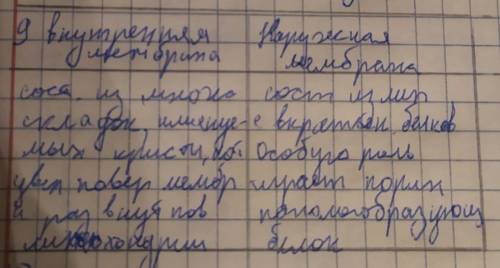 9 внутренняя Наружная
мембрана мембрана
сост. из много сост из лип
складок, именуе- с вкраплен. белков
мых кристы, Особую роль
увел повер мембр играет порин
и раз внут пов каналообразующ
митохондрии белок